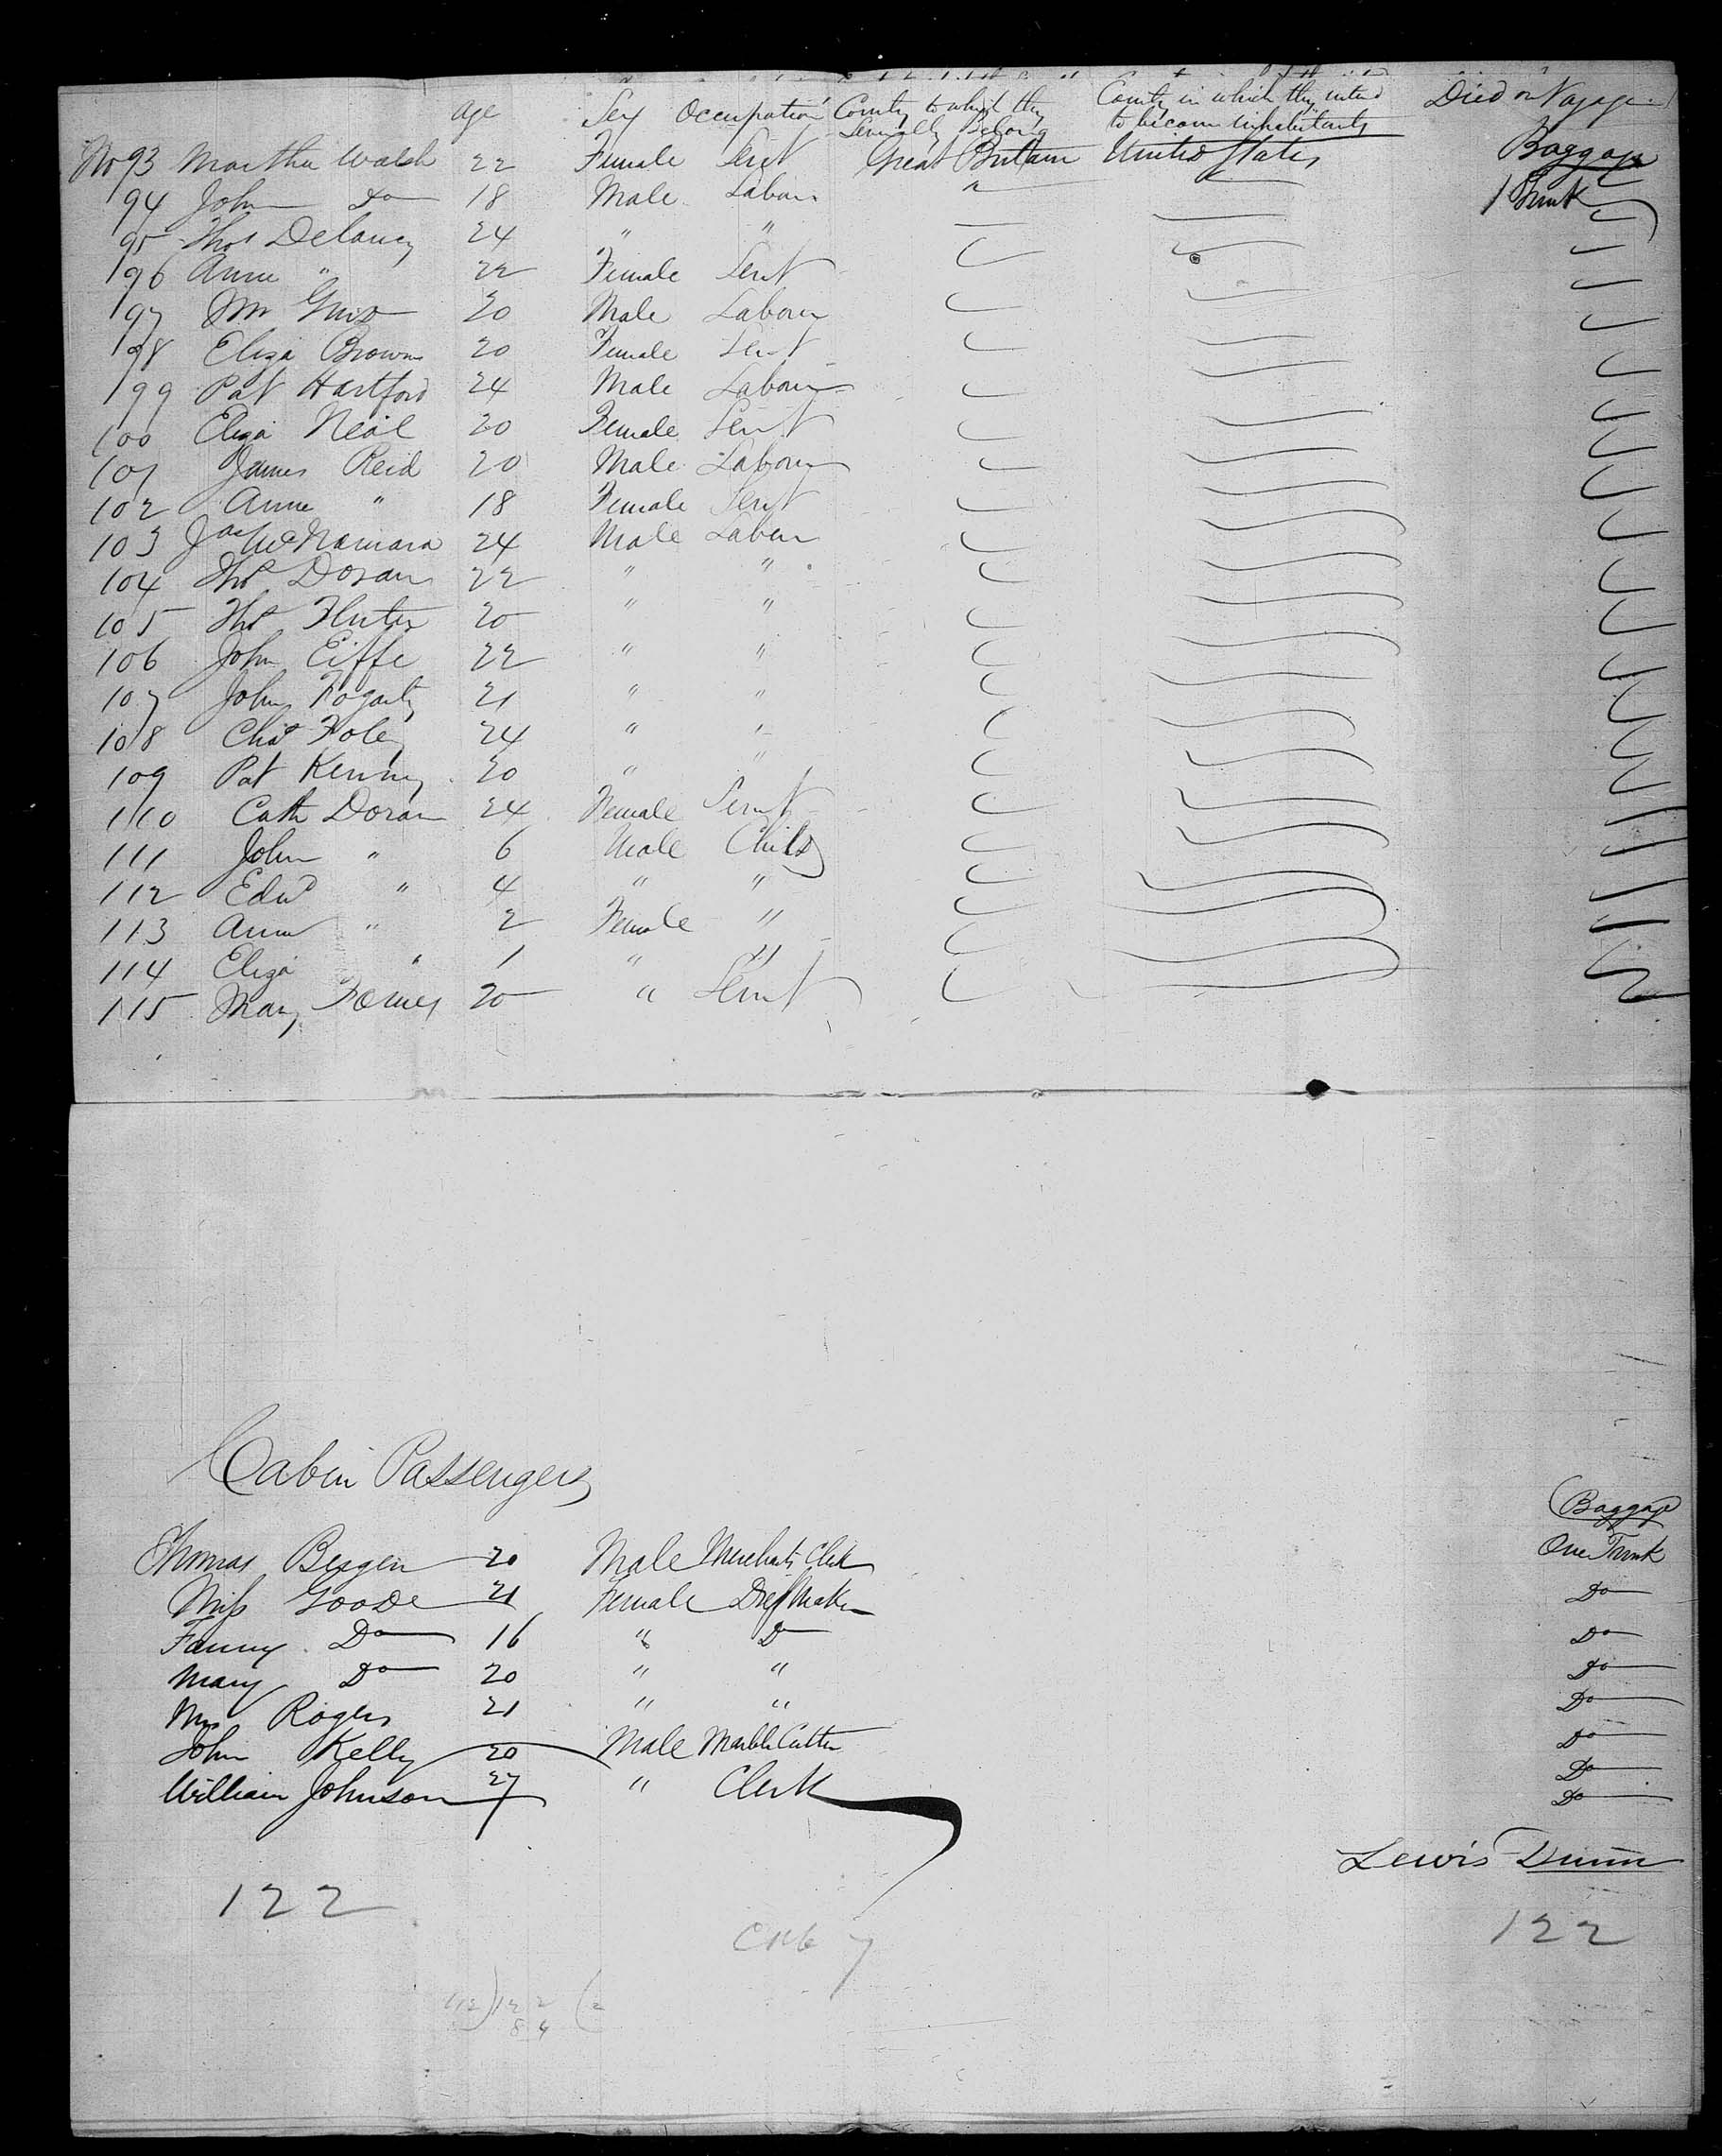 age Sex Occupation Country to which they Severally Belong Country in which they intend to become inhabitants Died on Voyage
No 93 Martha Walsh 22 Female Servt Great Britain United States Baggage
94 John Do 18 Male Labour " 1 Trunk
95 Thos Delaney 24 " "
96 Anne " 22 Female Servt
97 Wm 20 Male Labour
98 Eliza Brown 20 Female Servt
99 Pat Hartford 24 Male Labour
100 Eliza Neal 20 Female Servt
101 James Reid 20 Male Labour
102 Anne " 18 Female Servt
103 Jas McNamara 24 Male Labour
104 Thos Doran 22 " "
105 Thos 20 " "
106 John Eiffe 22 " "
107 John Fogarty 21 " "
108 Chas Foley 24 " "
109 Pat Kenny 20 " "
110 Cath Doran 24 Female Servt
111 John " 6 Male Child
112 Edwd " 4 " "
113 Anne " 2 Female "
114 Eliza " 1 " "
115 Mary 20 " Servt
Cabin Passengers
Baggage
Thomas Bergen 20 Male Merchants Clerk One Trunk
Miss Goode 21 Female Dress Maker Do
Fanny Do 16 " Do Do
Mary Do 20 " " Do
Mrs Rogers 21 " " Do
John Kelly 20 Male Marble Cutter Do
William Johnson 27 " Clerk Do
Do
Lewis Dunn
122
122
7